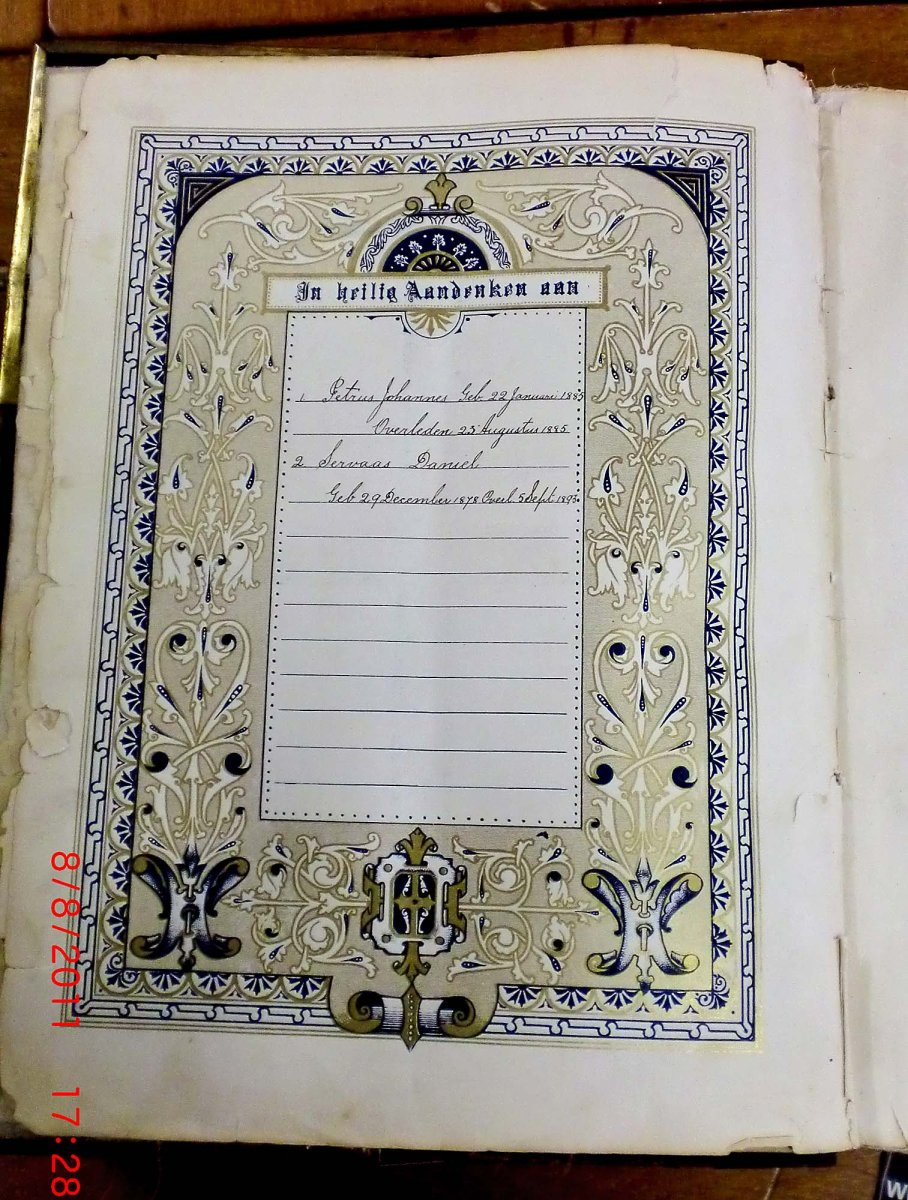 In heilig Aandenken aan
1 Petrus Johannes Geb. 22 Januari 1885
Overleden 25 Augustus 1885
2 Servaas Daniel
Geb 29 December 1878 Overl. 5 Sept. 1893
8/8/2011 17:28
W